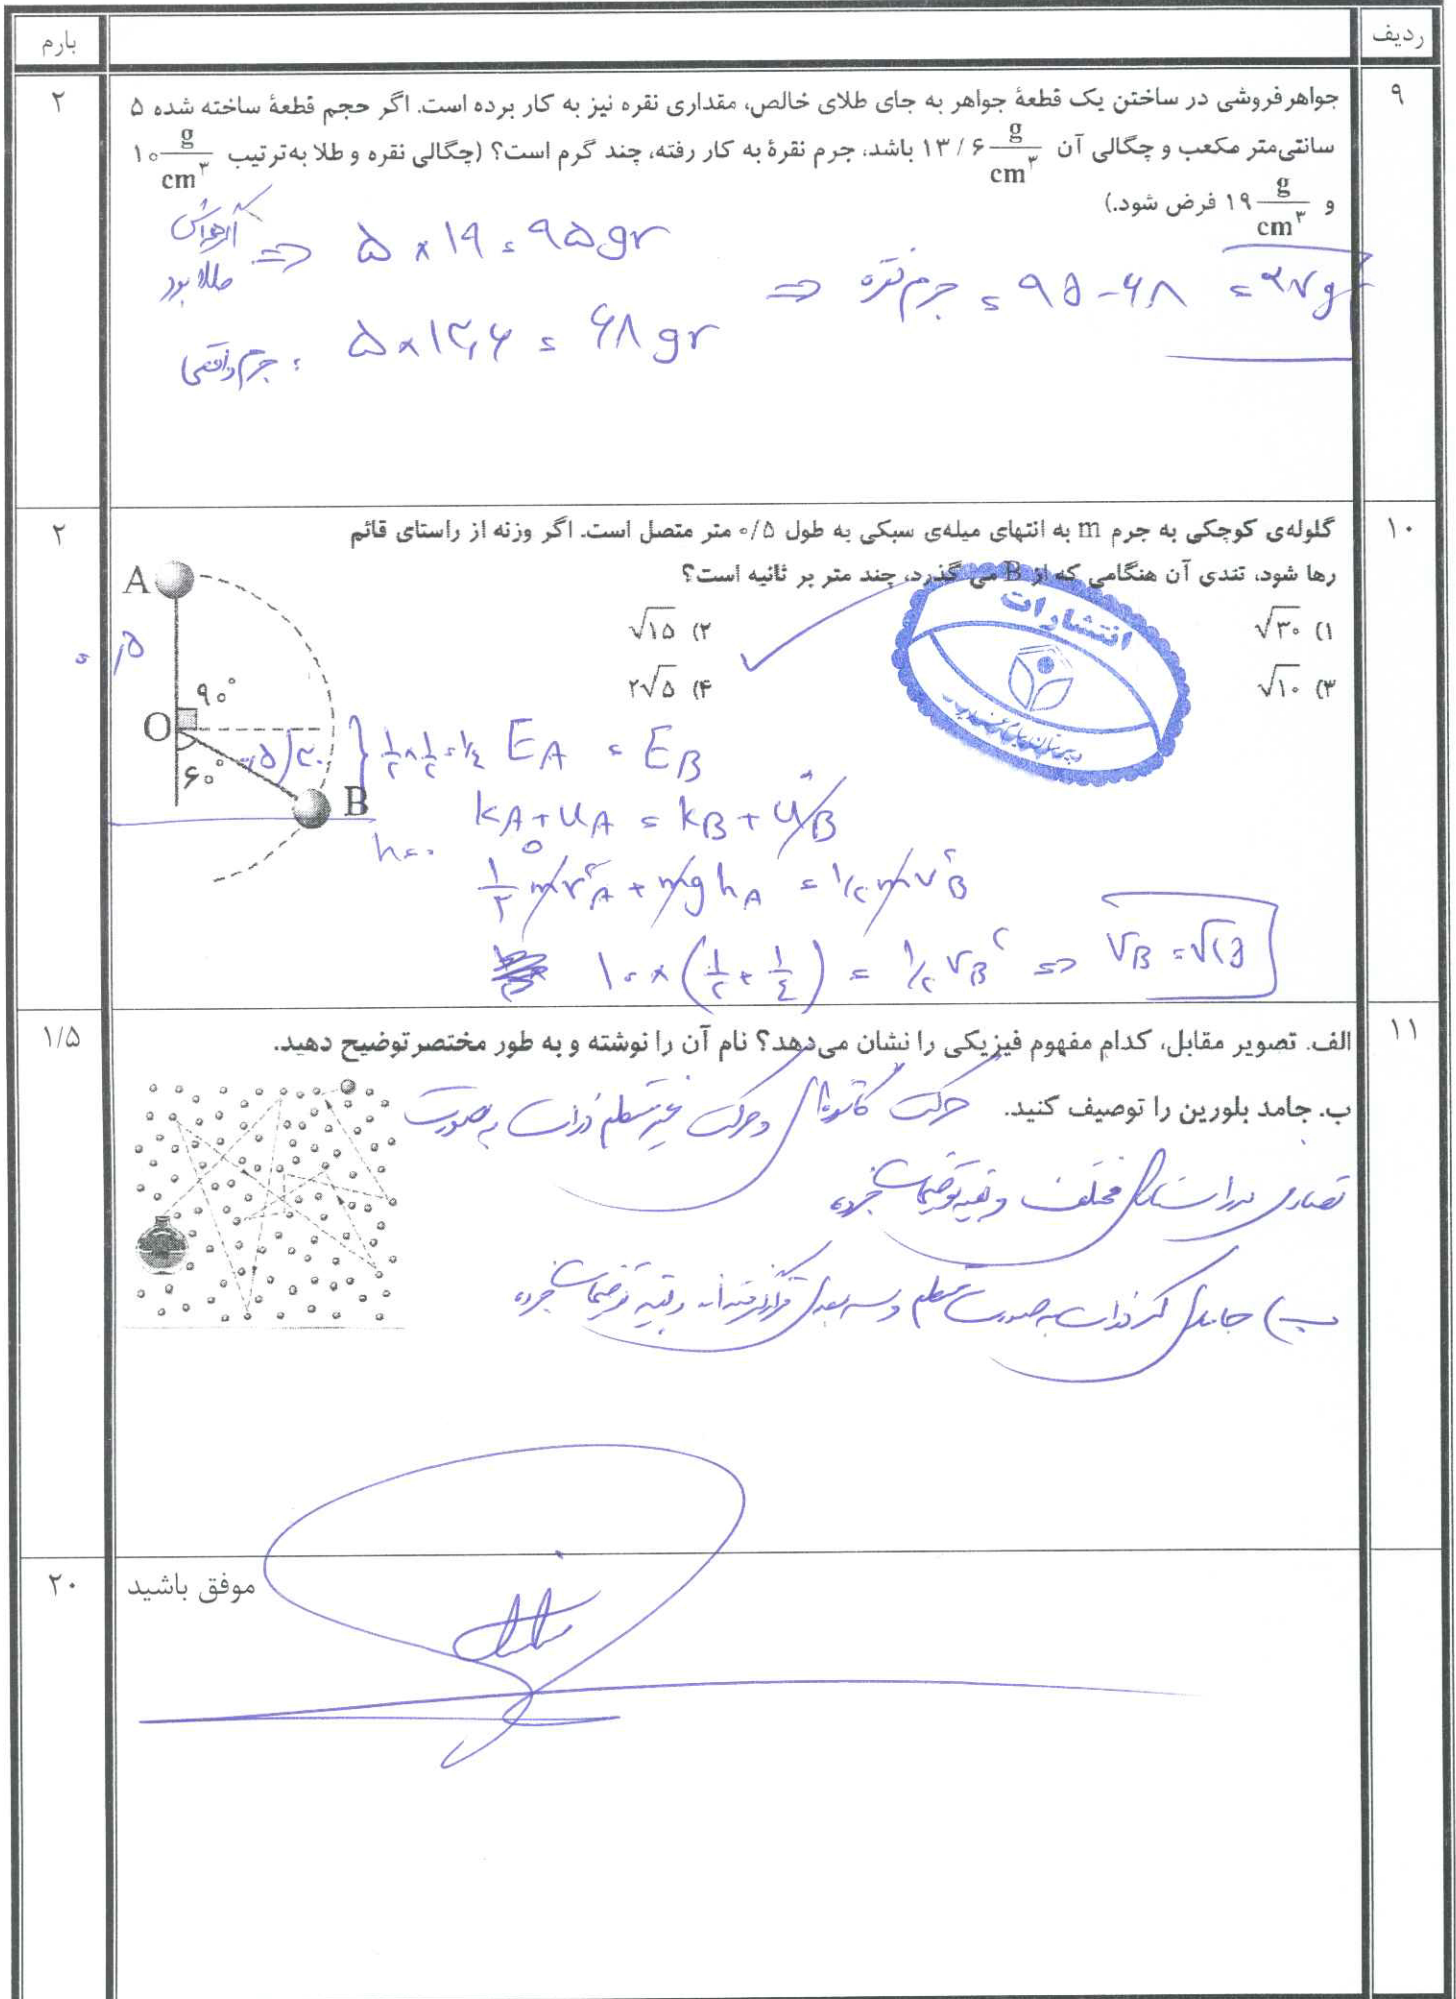 ردیف
بارم
۹
۲
جواهرفروشی در ساختن یک قطعهٔ جواهر به جای طلای خالص، مقداری نقره نیز به کار برده است. اگر حجم قطعهٔ ساخته شده ۵
سانتی‌متر مکعب و چگالی آن ۱۳/۶ g/cm۳ باشد، جرم نقرهٔ به کار رفته، چند گرم است؟ (چگالی نقره و طلا به‌ترتیب ۱۰ g/cm۳
و ۱۹ g/cm۳ فرض شود.)
طلا بود ⇒ ۵ × ۱۹ = ۹۵ gr
جرم واقعی : ۵ × ۱۳,۶ = ۶۸ gr
⇒ جرم نقره = ۹۵ - ۶۸ = ۲۷ g
۱۰
۲
گلوله‌ی کوچکی به جرم m به انتهای میله‌ی سبکی به طول ۰/۵ متر متصل است. اگر وزنه از راستای قائم
رها شود، تندی آن هنگامی که از B می گذرد، چند متر بر ثانیه است؟
۱) √۳۰
۲) √۱۵
۳) √۱۰
۴) ۲√۵
انتشارات
A
۹۰°
O
۶۰°
B
۱/۲ × ۱/۲ = ۱/۴
h = ۰
E_A = E_B
K_A + U_A = K_B + U_B
۱/۲ mv²_A + mgh_A = ۱/۲ mv²_B
۱۰ × (۱/۲ + ۱/۴) = ۱/۲ v_B² ⇒ V_B = √۱۵
۱۱
۱/۵
الف. تصویر مقابل، کدام مفهوم فیزیکی را نشان می‌دهد؟ نام آن را نوشته و به طور مختصر توضیح دهید.
ب. جامد بلورین را توصیف کنید.
حرکت کاتوره‌ای و حرکت غیر منظم ذرات به صورت
تصادفی در راستاهای مختلف و بقیه توضیحات جزوه
ب) جامدی که ذرات به صورت منظم و سه بعدی قرار گرفته اند و بقیه توضیحات جزوه
۲۰
موفق باشید